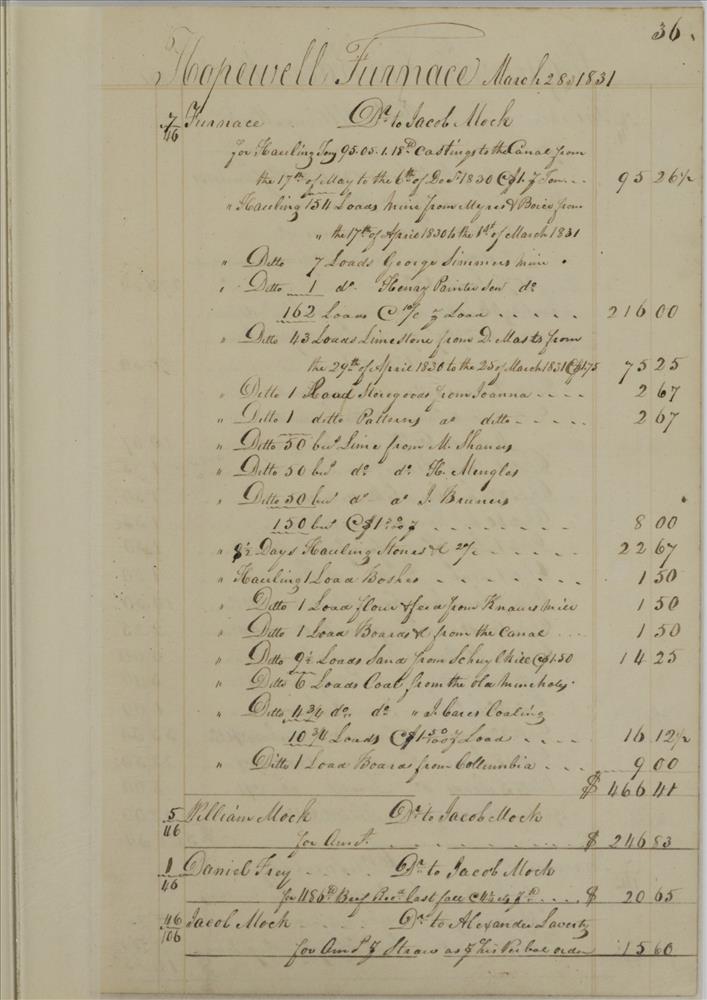 36.
Hopewell Furnace March 28th 1831
7/46 Furnace Dr to Jacob Mock
for Hauling Ton 95.05.1.18 lb Castings to the Canal from
the 17th of May to the 6th of Decr 1830 @ $1 ⅌ Ton - - 95 26½
" Hauling 154 Loads mine from Myres & Boies from
" the 17th of April 1830 to the 1st of March 1831
" Ditto 7 Loads George Simmers mine
" Ditto 1 do. Henry Painter Sen do
162 Loads @ 10/ ⅌ Load - - - - - 216 00
" Ditto 43 Loads Limestone from D. Masts from
the 29th of April 1830 to the 25 of March 1831 @ $1.75 75 25
" Ditto 1 Load Storegoods from Joanna - - - - 2 67
" Ditto 1 ditto Patterns do ditto - - - - - 2 67
" Ditto 50 bus Lime from M. Shaners
" Ditto 50 bus do do H. Mengles
" Ditto 50 bus do do J. Bruners
150 bus - - - - - - - - 8 00
" 8½ Days Hauling Stones &c - - - - - - 22 67
" Hauling 1 Load Boshes - - - - - - - 1 50
" Ditto 1 Load flour & feed from Knauers mill 1 50
" Ditto 1 Load Boards &c from the Canal - - - 1 50
" Ditto 9½ Loads Sand from Schuylkill @ $1.50 14 25
" Ditto 6 Loads Coal from the old mineholes
" Ditto 4¾ do. do. " J. Cares Coaling
10¾ Loads @ $1 50/100 ⅌ Load - - - - 16 12½
" Ditto 1 Load Boards from Collumbia - - - 9 00
$ 466 41
5/46 William Mock Dr to Jacob Mock
for Amt. - - - - - - - - $ 246 83
1/46 Daniel Frey - - - - Dr to Jacob Mock
for lb Beef Recd last fall - - - $ 20 65
46/106 Jacob Mock - - - - Dr to Alexander Laverty
for Amt ⅌ Straw as ⅌ his Verbal order 15 60